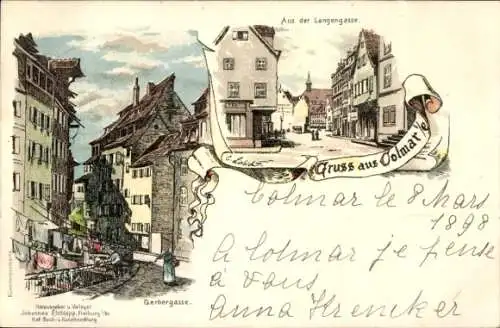 Aus der Langengasse.
Gruss aus Colmar
Colmar le 8 Mars
1898
A Colmar je pense
à Vous
Anna
Gerbergasse.
Herausgeber u. Verleger
Johannes Elchlepp, Freiburg i/B.
Hof Buch- u. Kunsthandlung